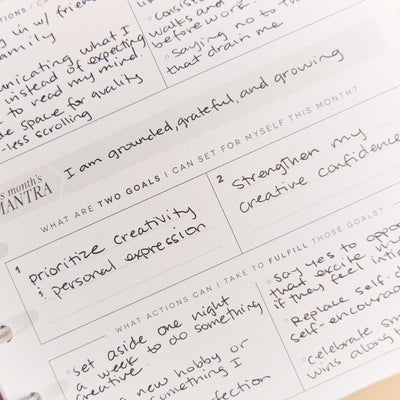 ACTIONS I C
g in w/ friend
family
nicating what I
instead of expecting
to read my mind
e space for quality
-less scrolling
○ consist
walks and
before work
○ saying no to th
that drain me
s month's
MANTRA
I am grounded, grateful, and growing
WHAT ARE TWO GOALS I CAN SET FOR MYSELF THIS MONTH?
1 prioritize creativity
& personal expression
2 Strengthen my
creative confidence
WHAT ACTIONS CAN I TAKE TO FULFILL THOSE GOALS?
○ set aside one night
a week to do something
creative
new hobby or
something I
fection
○ Say yes to oppo
that excite
if they feel inti
○ Replace self-d
self-encourag
○ celebrate sm
wins along t